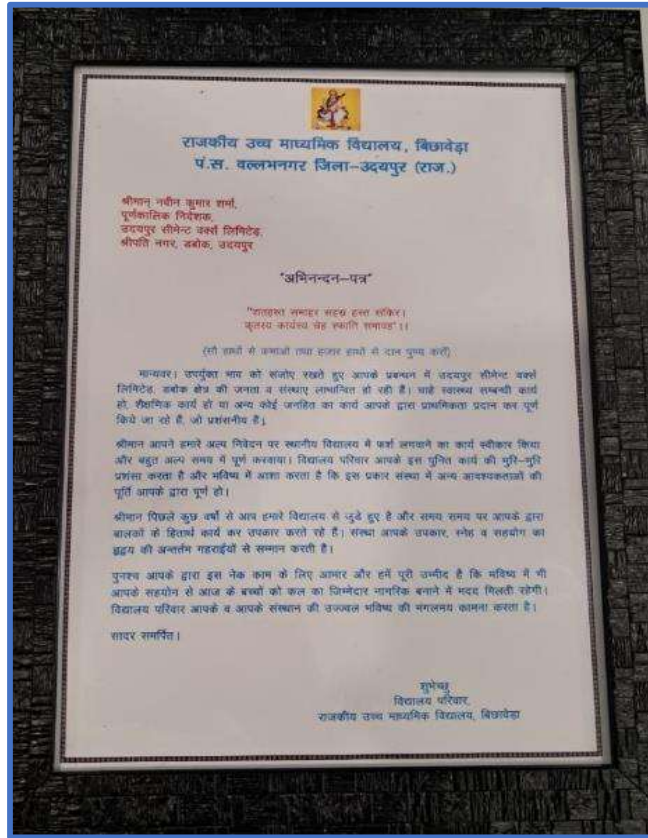 राजकीय उच्च माध्यमिक विद्यालय, बिछावेड़ा
पं.स. वल्लभनगर जिला–उदयपुर (राज.)
श्रीमान् नवीन कुमार शर्मा,
पूर्णकालिक निदेशक,
उदयपुर सीमेन्ट वर्क्स लिमिटेड,
श्रीपति नगर, डबोक, उदयपुर
"अभिनन्दन–पत्र"
"शतहस्त समाहर सहस्र हस्त संकिर।
कृतस्य कार्यस्य चेह स्फातिं समावह"।।
(सौ हाथों से कमाओं तथा हजार हाथों से दान पुण्य करों)
मान्यवर। उपर्युक्त भाव को संजोए रखते हुए आपके प्रबन्धन में उदयपुर सीमेन्ट वर्क्स
लिमिटेड, डबोक क्षेत्र की जनता व संस्थाए लाभान्वित हो रही है। चाहे स्वास्थ्य सम्बन्धी कार्य
हो, शैक्षणिक कार्य हो या अन्य कोई जनहित का कार्य आपके द्वारा प्राथमिकता प्रदान कर पूर्ण
किये जा रहे हैं, जो प्रशंसनीय हैं।
श्रीमान आपने हमारे अल्प निवेदन पर स्थानीय विद्यालय में फर्श लगवाने का कार्य स्वीकार किया
और बहुत अल्प समय में पूर्ण करवाया। विद्यालय परिवार आपके इस पुनित कार्य की भुरि–भुरि
प्रशंसा करता है और भविष्य में आशा करता है कि इस प्रकार संस्था में अन्य आवश्यकताओं की
पूर्ति आपके द्वारा पूर्ण हो।
श्रीमान पिछले कुछ वर्षो से आप हमारे विद्यालय से जुडे हुए है और समय समय पर आपके द्वारा
बालकों के हितार्थ कार्य कर उपकार करते रहे हैं। संस्था आपके उपकार, स्नेह व सहयोग का
हृदय की अन्तर्तम गहराईयों से सम्मान करती है।
पुनश्च आपके द्वारा इस नेक काम के लिए आभार और हमें पूरी उम्मीद है कि भविष्य में भी
आपके सहयोग से आज के बच्चों को कल का जिम्मेदार नागरिक बनाने में मदद मिलती रहेगी।
विद्यालय परिवार आपके व आपके संस्थान की उज्ज्वल भविष्य की मंगलमय कामना करता है।
सादर समर्पित।
शुभेच्छु
विद्यालय परिवार,
राजकीय उच्च माध्यमिक विद्यालय, बिछावेड़ा